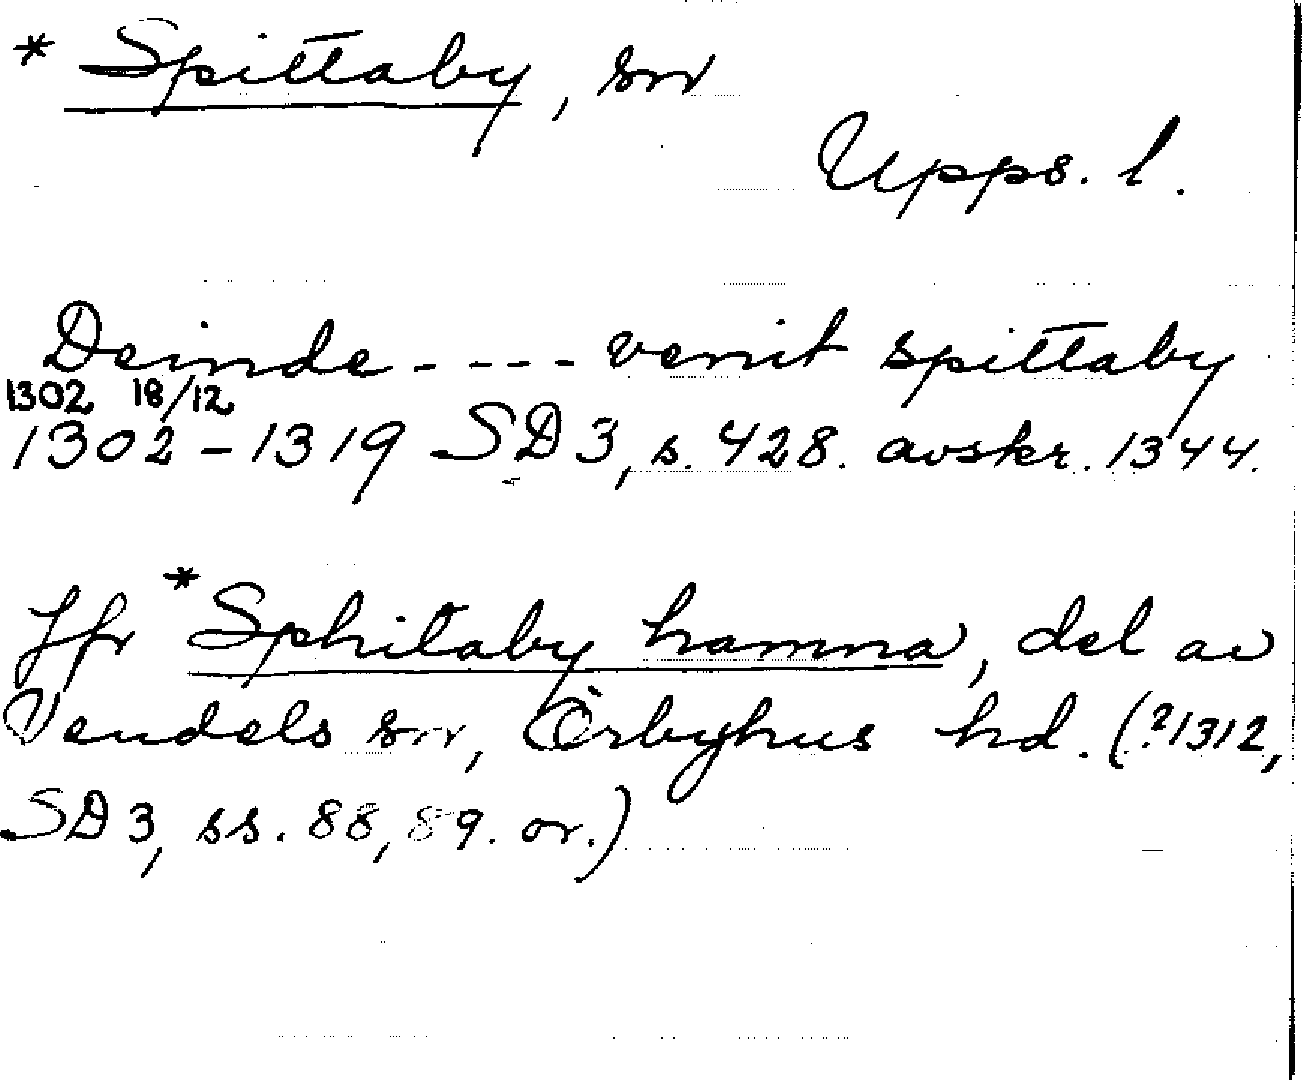 * Spittaby, sn
Upps. l.
Deinde - - - - venit spittaby
1302 18/12
1302-1319 SD3, s. 428. avskr. 1344.
Jfr *Sphitaby hamna, del av
Vendels sn, Örbyhus hd. (?1312,
SD3, ss. 88, 89. or.)